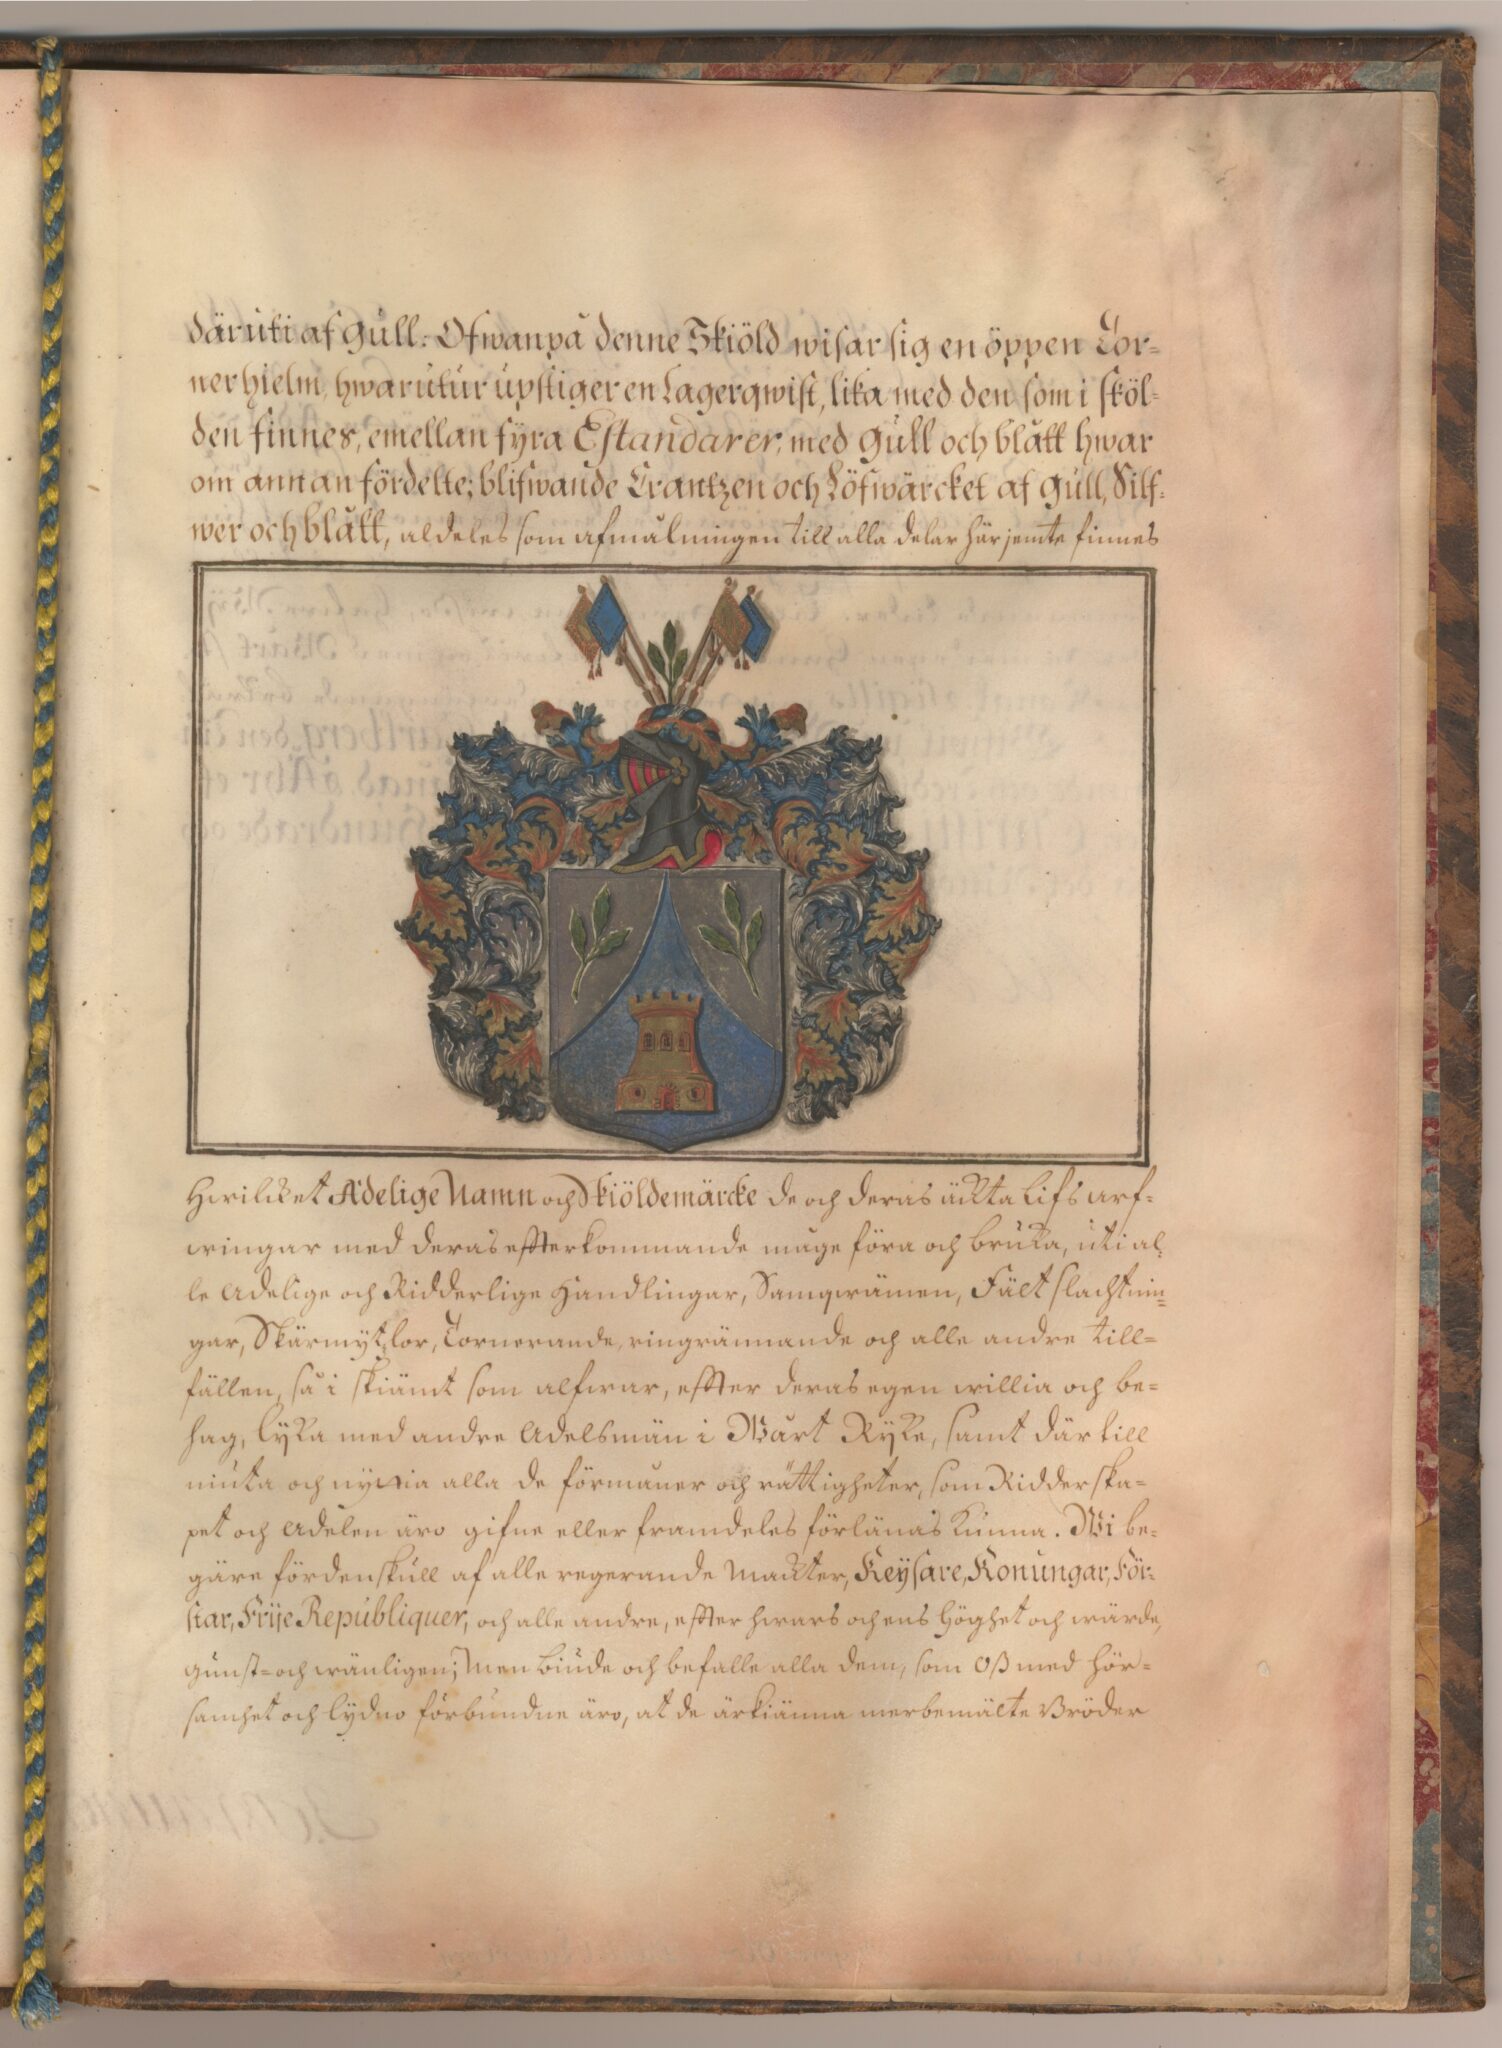 däruti af gull. Ofwanpå denne Skiöld wisar sig en öppen Tor-
nerhielm, hwarutur upstiger en Lagerqwist, lika med den som i sköl-
den finnes, emellan fyra Estandarer, med gull och blått hwar
om annan fördelte; blifwande Crantzen och Löfwärcket af gull, Silf-
wer och blått, aldeles som afmålningen till alla delar härjemte finnes
Hwilcket Adelige Namn och Skiöldemärcke de och deras äkta Lifs arf-
wingar med deras effterkommande måge föra och bruka, uti al-
le Adelige och Ridderlige Handlingar, Samqwämen, Fält slachtnin-
gar, Skärmytzlor, Tornerande, ringrännande och alle andre till-
fällen, så i skiämt som alfwar, effter deras egen willia och be-
hag, lyka med andre Adelsmän i Wårt Ryke, samt där till
niuta och nyttia alla de förmåner och rättigheter, som Ridderska-
pet och Adelen äro gifne eller framdeles förlänas kunna. Wi be-
gäre fördenskull af alle regerande Makter, Keysare, Konungar, För-
star, Frije Republiquer, och alle andre, effter hwars och ens Höghet och wärde,
gunst- och wänligen; Men biude och befalle alla dem, som Oß med hör-
samhet och lydno förbundne äro, at de ärkiänna merbemälte Bröder